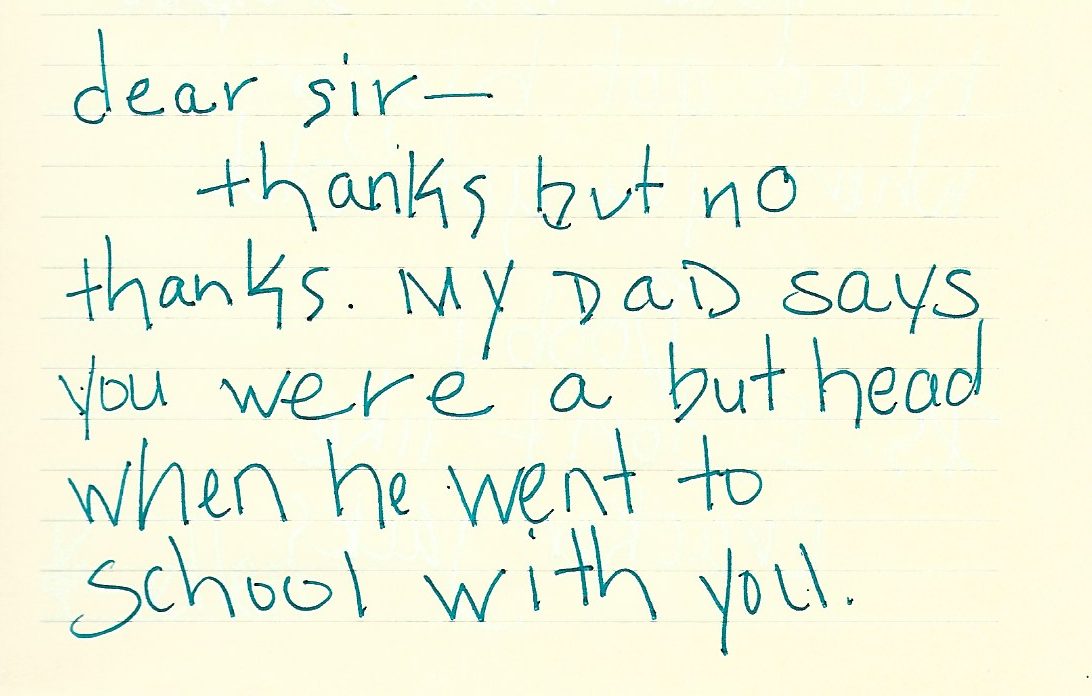 dear sir—
thanks but no
thanks. My DaD says
you were a but head
when he went to
school with you.